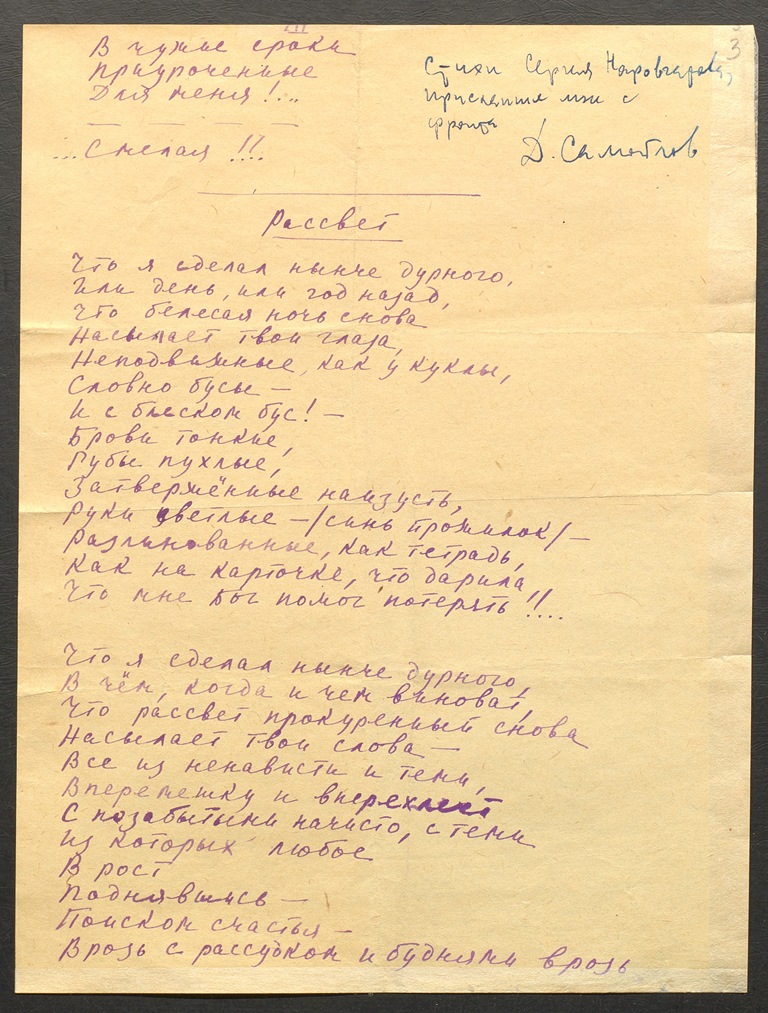 3
В чужие сроки
Приуроченные
Для меня!...
Стихи Сергея Наровчатова,
присланные мне с
фронта
Д. Самойлов
...Смелая!!!.
Рассвет
Что я сделал нынче дурного,
Или день, или год назад,
Что белесая ночь снова
Насылает твои глаза,
Неподвижные, как у куклы,
Словно бусы —
И с блеском бус! —
Брови тонкие,
Губы пухлые,
Затвержённые наизусть,
Руки светлые —/синь прожилок/—
Разлинованные, как тетрадь,
Как на карточке, что дарила
Что мне Бог помог потерять!!...
Что я сделал нынче дурного,
В чём, когда и чем виноват,
Что рассвет прокуренный снова
Насылает твои слова —
Все из ненависти и теми,
Вперемешку и вперехлест
С позабытыми начисто, с теми
Из которых любое
В рост
Поднявшись —
Поиском счастья —
Врозь с рассудком и буднями врозь